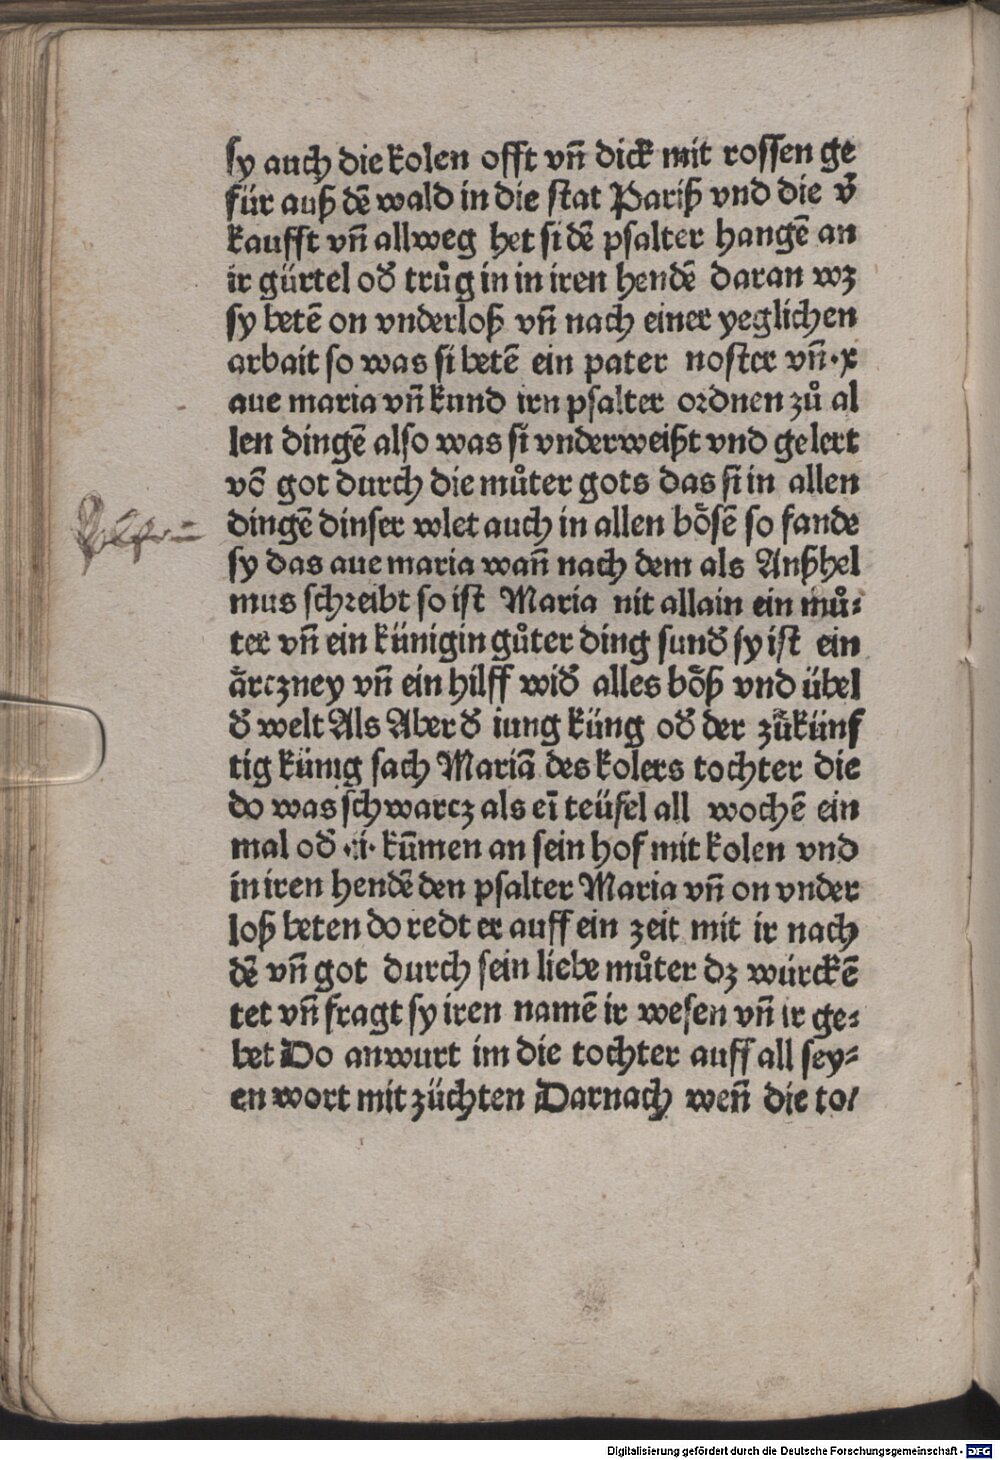 sy auch die kolen offt vñ dick mit rossen ge
für auß dē wald in die stat Pariß vnd die v̄
kaufft vñ allweg het si dē psalter hangē an
ir gürtel od̄ trůg in in iren hendē daran wz
sy betē on vnderloß vñ nach einer yeglichen
arbait so was si betē ein pater noster vñ ·x
aue maria vñ kund irn psalter ordnen zů al
len dingē also was si vnderweißt vnd gelert
vō got durch die můter gots das si in allen
dingē dinser wlet auch in allen bȫsē so fande
sy das aue maria wañ nach dem als Anßhel
mus schreibt so ist Maria nit allain ein mů⸗
ter vñ ein künigin gůter ding sund̄ sy ist ein
ärczney vñ ein hilff wid̄ alles böß vnd übel
d̄ welt Als Aber d̄ iung küng od̄ der zůkünf
tig künig sach Mariā des kolers tochter die
do was schwarcz als eī teüfel all wochē ein
mal od̄ ·ii· kūmen an sein hof mit kolen vnd
in iren hendē den psalter Maria vñ on vnder
loß beten do redt er auff ein zeit mit ir nach
dē vñ got durch sein liebe můter dz würckē
tet vñ fragt sy iren namē ir wesen vñ ir ge⸗
bet Do anwurt im die tochter auff all sey⸗
en wort mit züchten Darnach weñ die to/
Digitalisierung gefördert durch die Deutsche Forschungsgemeinschaft - DFG